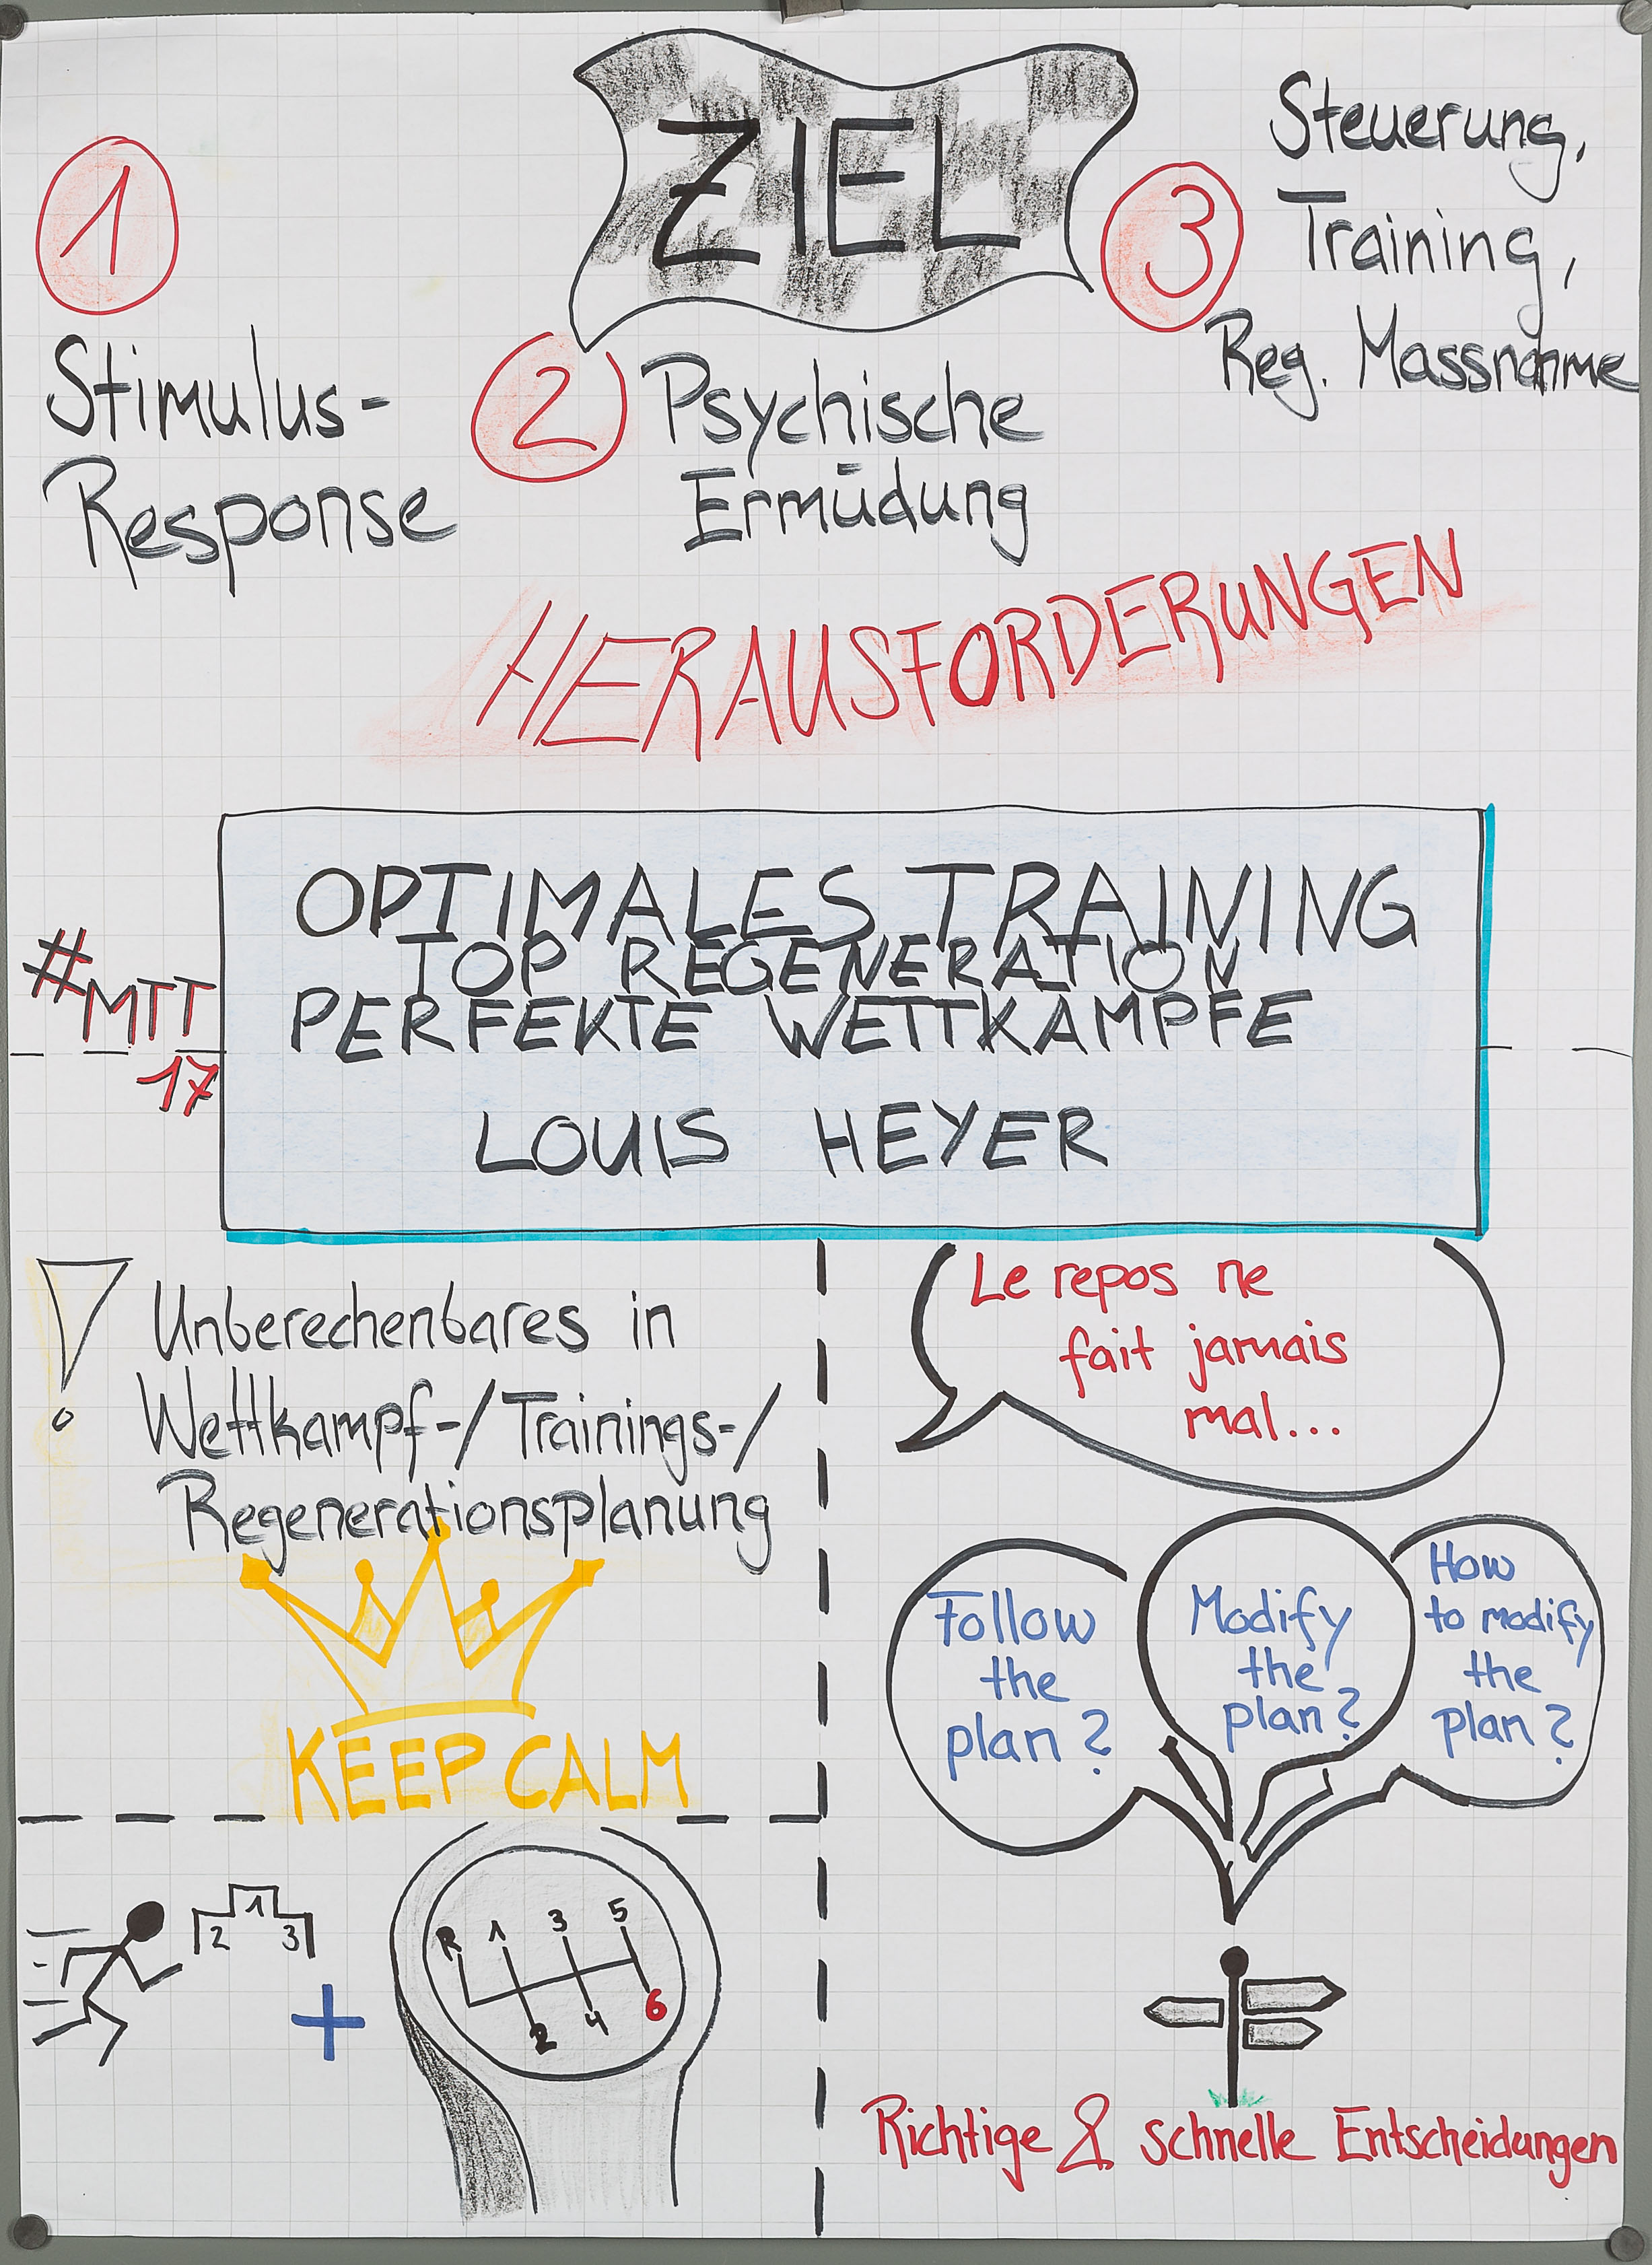 ZIEL
1
Stimulus-
Response
2
Psychische
Ermüdung
3
Steuerung,
Training,
Reg. Massnahme
HERAUSFORDERUNGEN
#MTT
17
OPTIMALES TRAINING
TOP REGENERATION
PERFEKTE WETTKÄMPFE
LOUIS HEYER
Unberechenbares in
Wettkampf-/Trainings-/
Regenerationsplanung
KEEP CALM
Le repos ne
fait jamais
mal...
Follow
the
plan?
Modify
the
plan?
How
to modify
the
plan?
1
2 3
+
R 1 3 5
2 4 6
Richtige & schnelle Entscheidungen